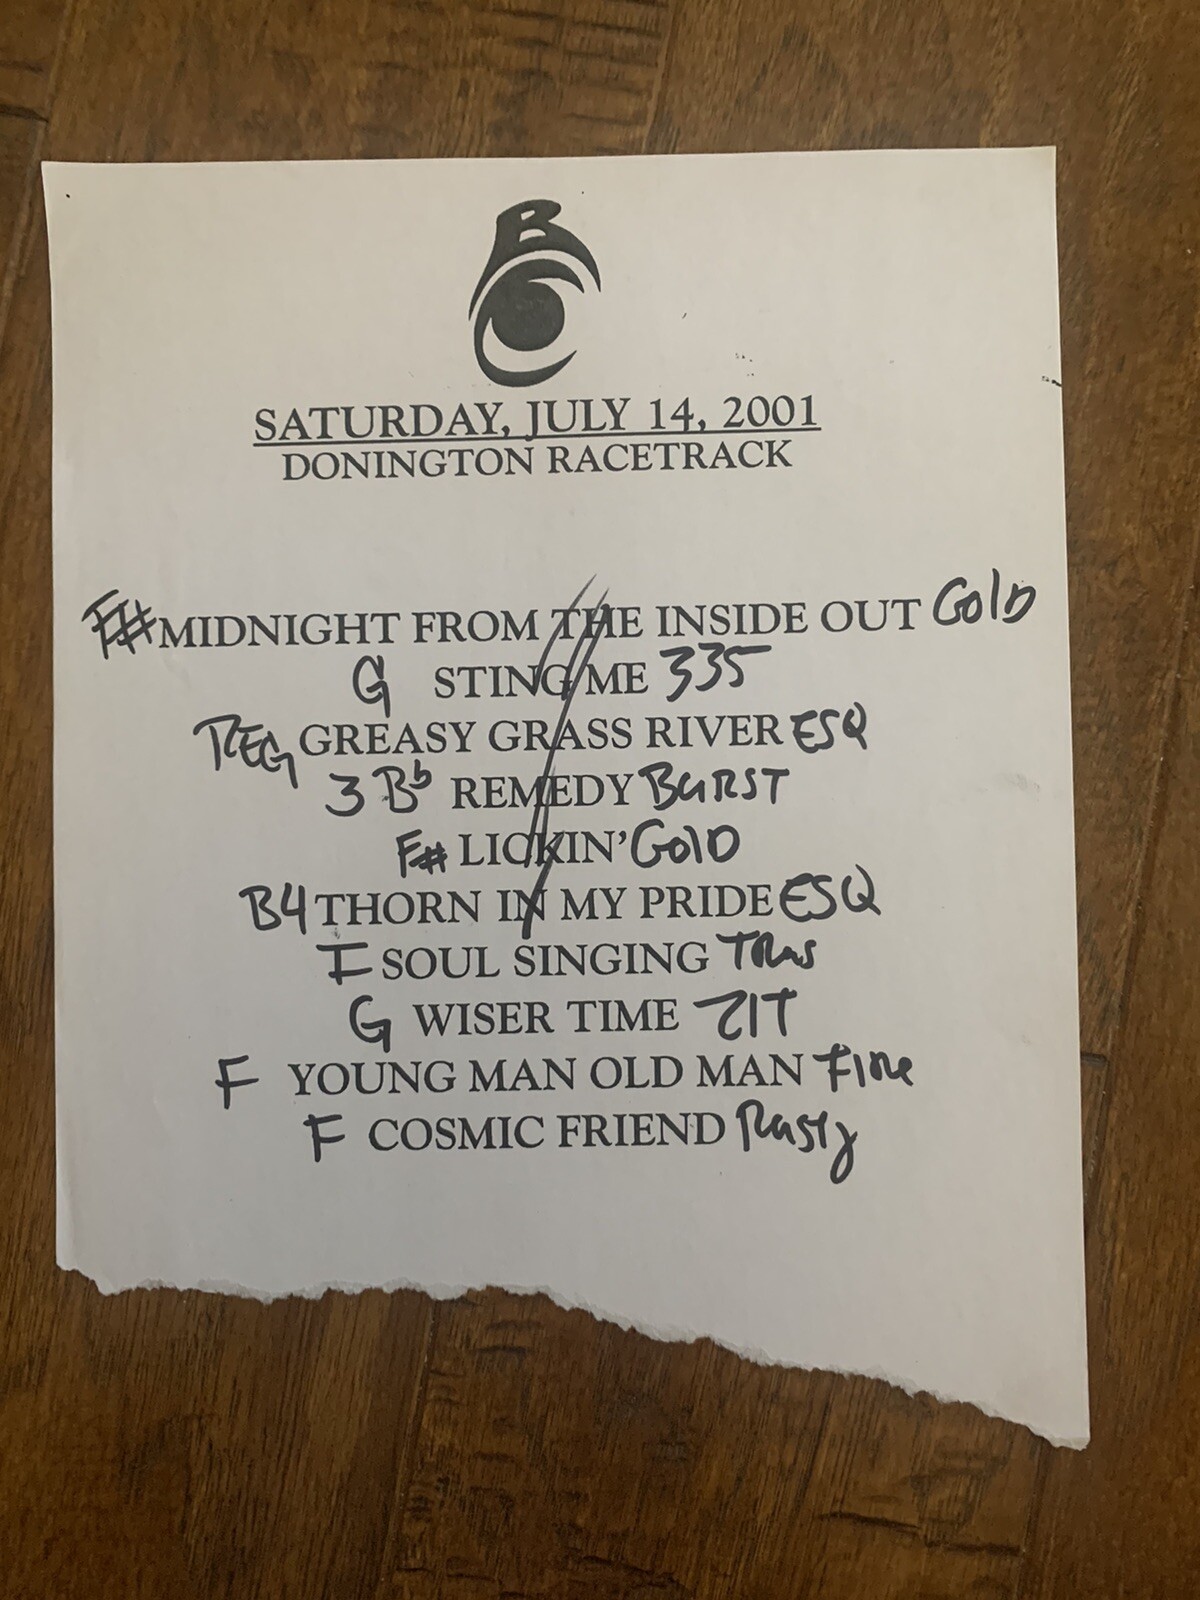 B
SATURDAY, JULY 14, 2001
DONINGTON RACETRACK
F# MIDNIGHT FROM THE INSIDE OUT GOLD
G STING ME 335
REG GREASY GRASS RIVER ESQ
3 Bb REMEDY BURST
F# LICKIN' GOLD
B4 THORN IN MY PRIDE ESQ
F SOUL SINGING
G WISER TIME ZIT
F YOUNG MAN OLD MAN Fire
F COSMIC FRIEND Rusty